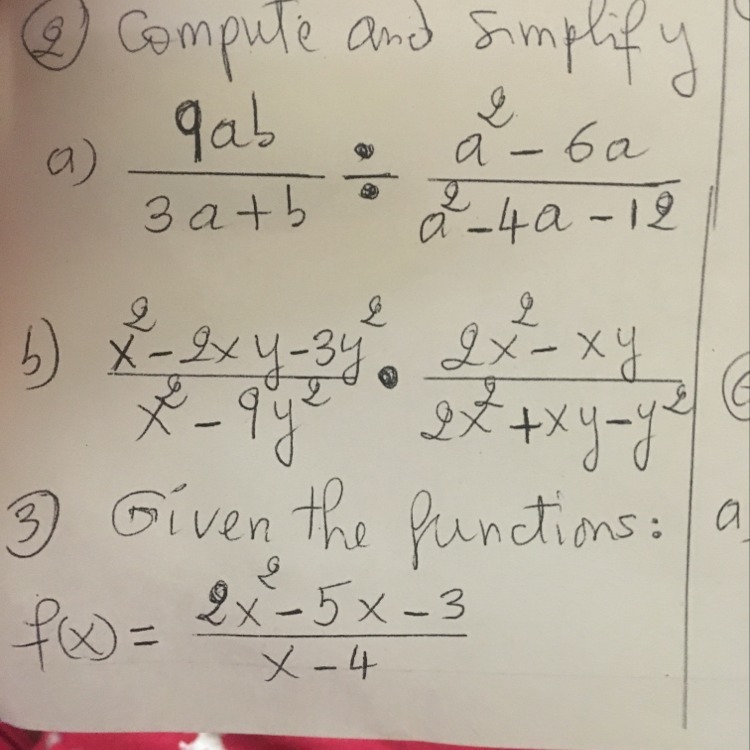 ② Compute and simplify
a) 9ab / 3a+b ÷ a² - 6a / a² - 4a - 12
b) x² - 2xy - 3y² / x² - 9y² • 2x² - xy / 2x² + xy - y²
③ Given the functions: a
f(x) = 2x² - 5x - 3 / x - 4